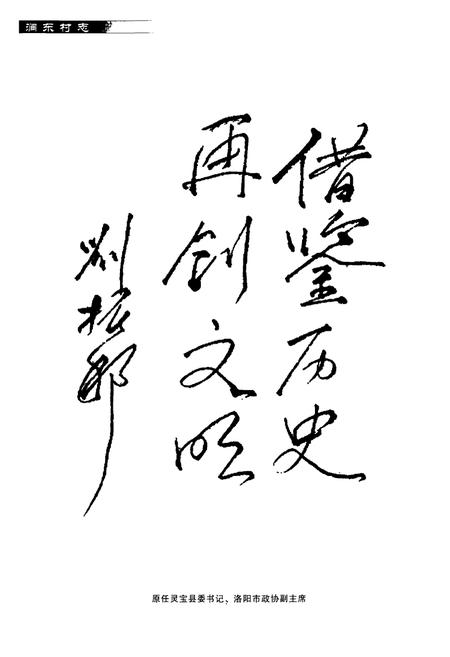 涧东村志
借鉴历史
再创文明
刘振邦
原任灵宝县委书记、洛阳市政协副主席